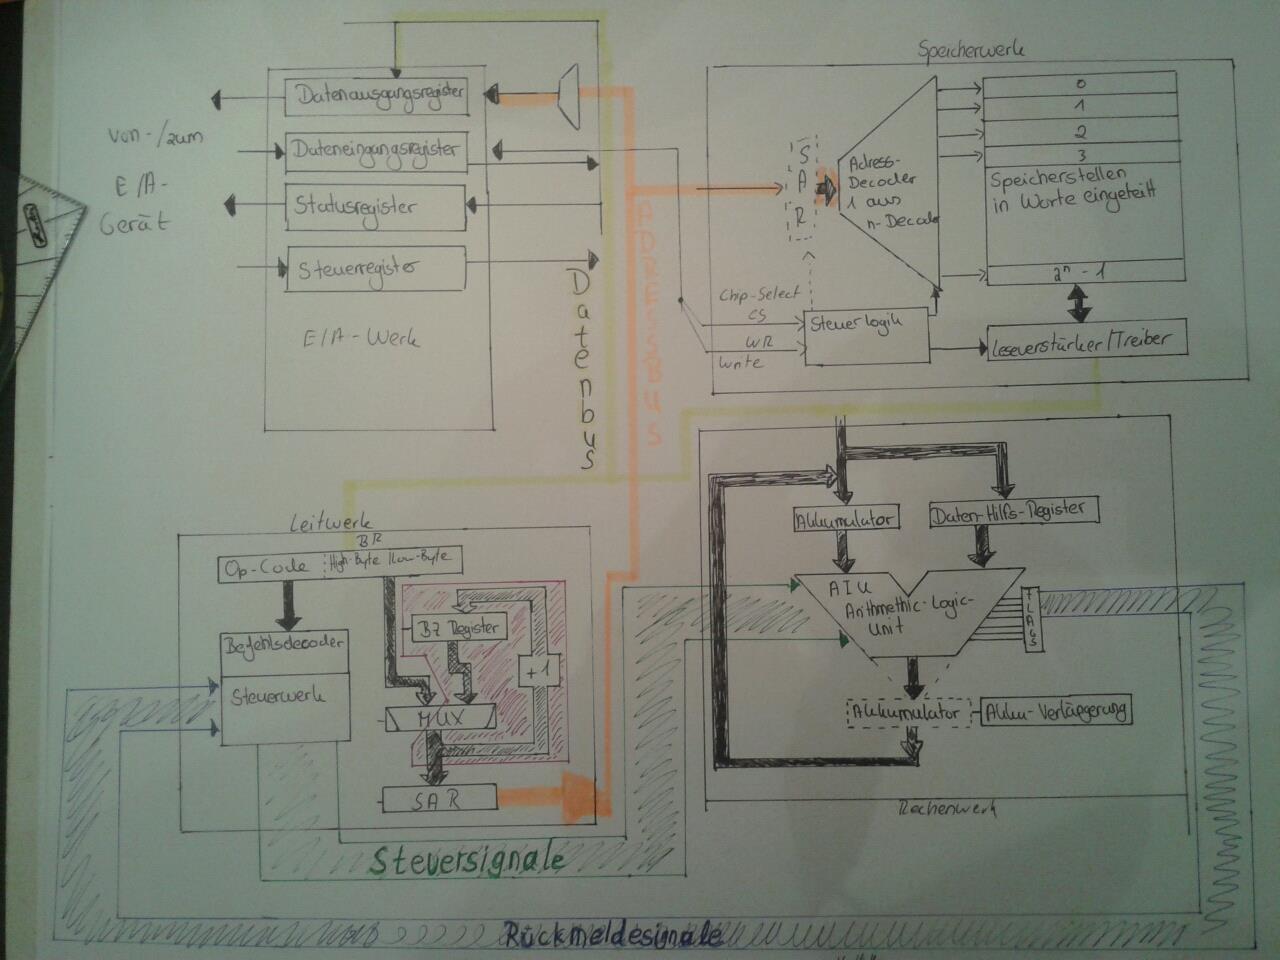 Speicherwerk
Datenausgangsregister
Dateneingangsregister
Statusregister
Steuerregister
E/A-Werk
von-/zum
E/A-
Gerät
Datenbus
ADRESSBUS
SAR
Adress-
Decoder
1 aus
n-Decoder
0
1
2
3
Speicherstellen
in Worte eingeteilt
2ⁿ - 1
Chip-Select
CS
WR
Write
Steuerlogik
Leseverstärker/Treiber
Leitwerk
BR
Op-Code High-Byte Low-Byte
Befehlsdecoder
Steuerwerk
BZ Register
+1
MUX
SAR
Akkumulator
Daten-Hilfs-Register
ALU
Arithmethic-Logic-
Unit
FLAGS
Akkumulator
Akku-Verlängerung
Rechenwerk
Steuersignale
Rückmeldesignale